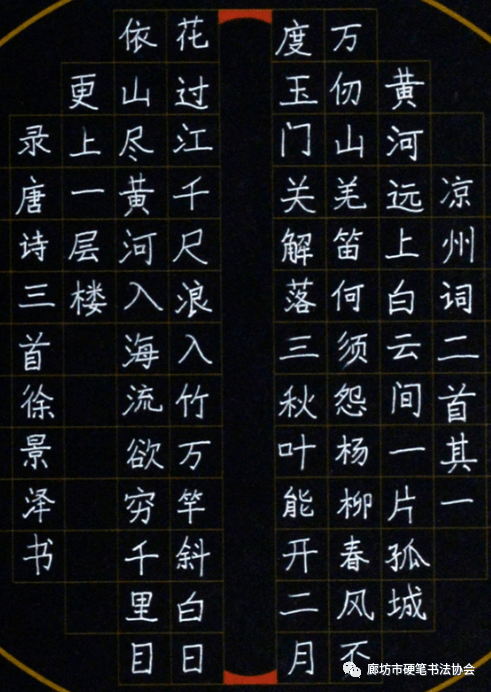 凉州词二首其一
黄河远上白云间一片孤城
万仞山羌笛何须怨杨柳春风不
度玉门关解落三秋叶能开二月
花过江千尺浪入竹万竿斜白日
依山尽黄河入海流欲穷千里目
更上一层楼
录唐诗三首徐景泽书
廊坊市硬笔书法协会